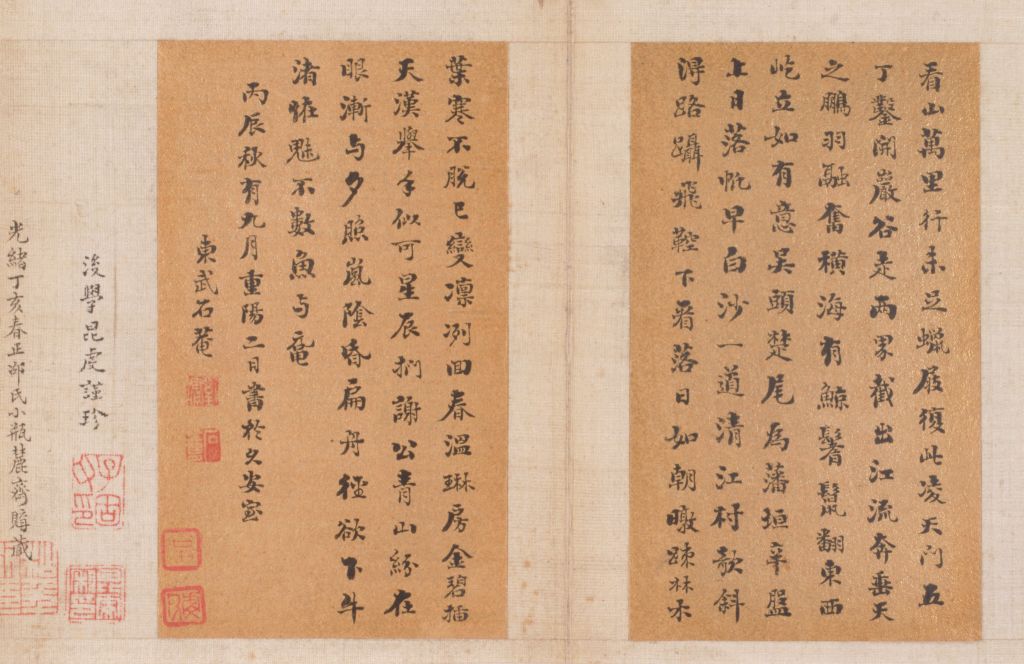 看山萬里行未足蠟屐復此凌天门五
丁鑿開巖谷是两界截出江流奔垂天
之鵬羽翮奮橫海有鯨鬐鬣翻東西
屹立如有意吴頭楚尾為藩垣辛盤
上日落帆早白沙一道清江村歌斜
得路躡飛鞚下看落日如朝暾疎林木
葉寒不脱已變凛冽回春温琳房金碧插
天漢舉手似可星辰捫謝公青山紛在
眼漸与夕照嵐陰昏扁舟徑欲下牛
渚恠魅不數魚与黿
丙辰秋有九月重陽二日書於久安室
東武石菴
後學昆虔謹珍
光緒丁亥春正邵氏小瓶麓齋購藏